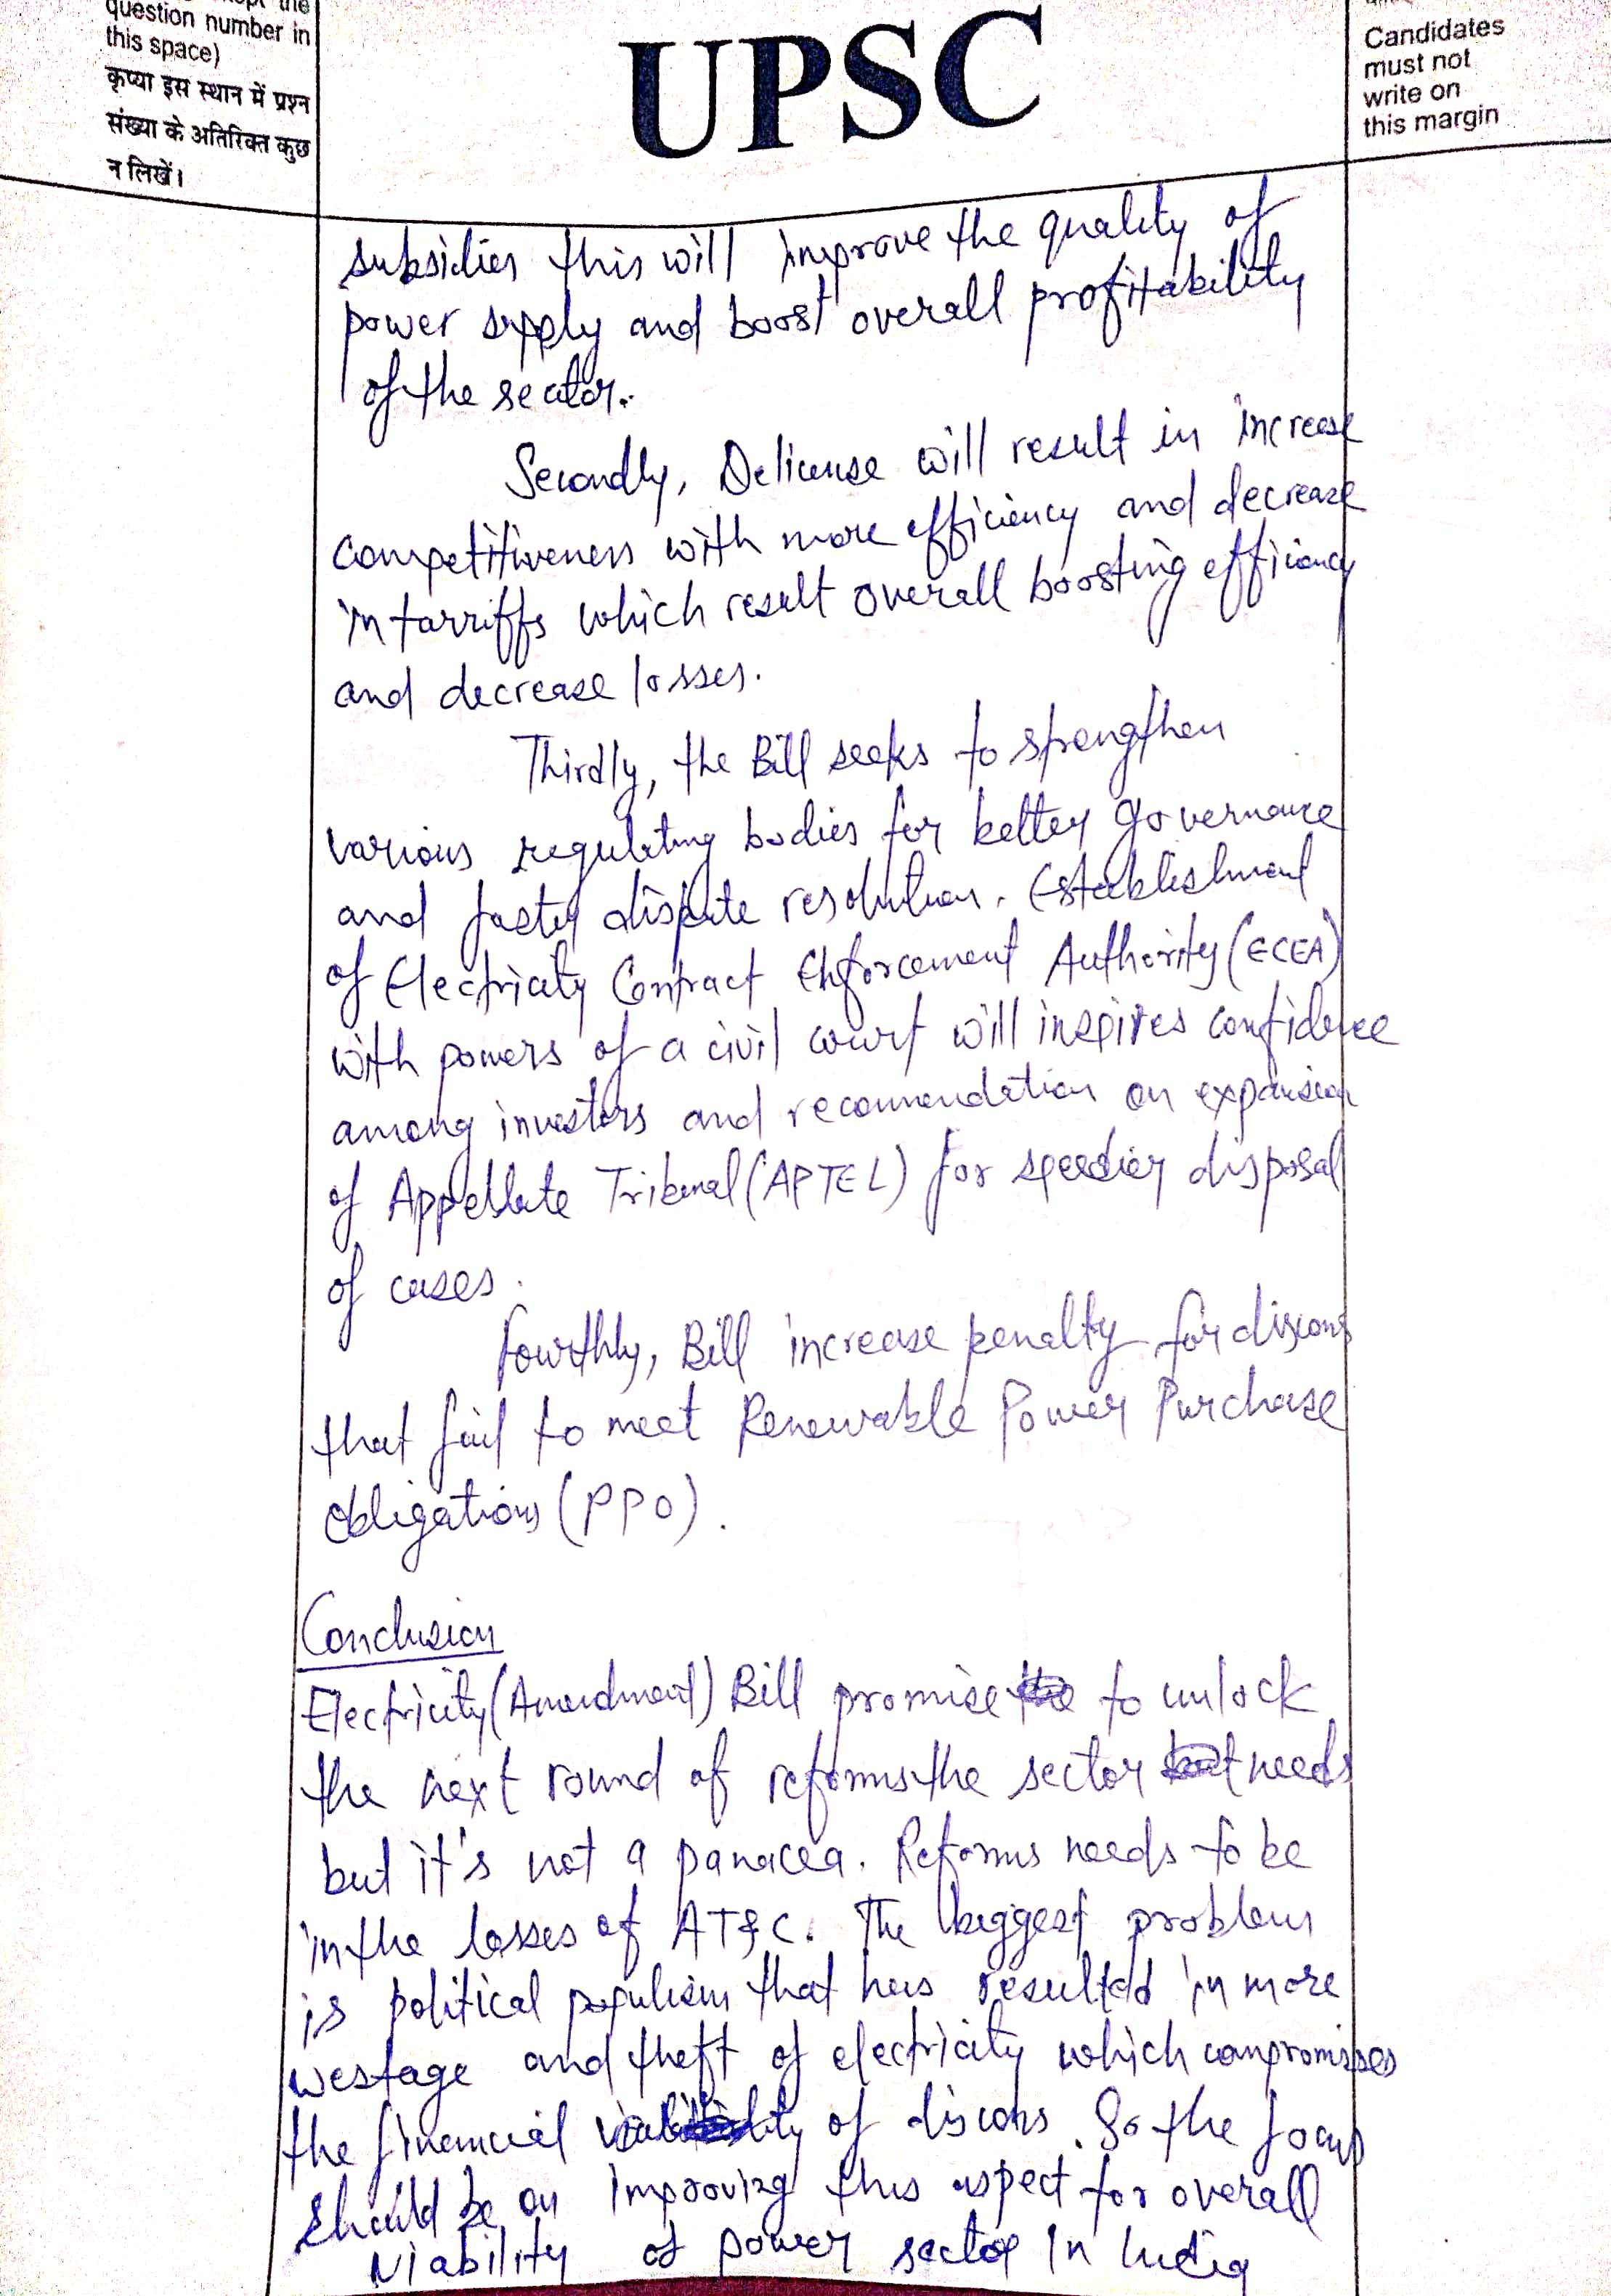 question number in
this space)
कृप्या इस स्थान में प्रश्न
संख्या के अतिरिक्त कुछ
न लिखें।
UPSC
Candidates
must not
write on
this margin
subsidies this will improve the quality of
power supply and boost overall profitability
of the sector.
Secondly, Delicense will result in increase
competitiveness with more efficiency and decrease
in tarriffs which result overall boosting efficiency
and decrease losses.
Thirdly, the Bill seeks to strengthen
various regulating bodies for better governance
and faster dispute resolution. Establishment
of Electricity Contract Enforcement Authority (ECEA)
with powers of a civil court will inspires confidence
among investors and recommendation on expansion
of Appellate Tribunal (APTEL) for speedier disposal
of cases.
Fourthly, Bill increase penalty for discoms
that fail to meet Renewable Power Purchase
Obligations (PPO).
Conclusion
Electricity (Amendment) Bill promise to unlock
the next round of reforms the sector needs
but it's not a panacea. Reforms needs to be
in the losses of AT&C. The biggest problem
is political populism that has resulted in more
westage and theft of electricity which compromises
the financial viability of discoms. So the focus
should be on improving this aspect for overall
viability of power sector in India